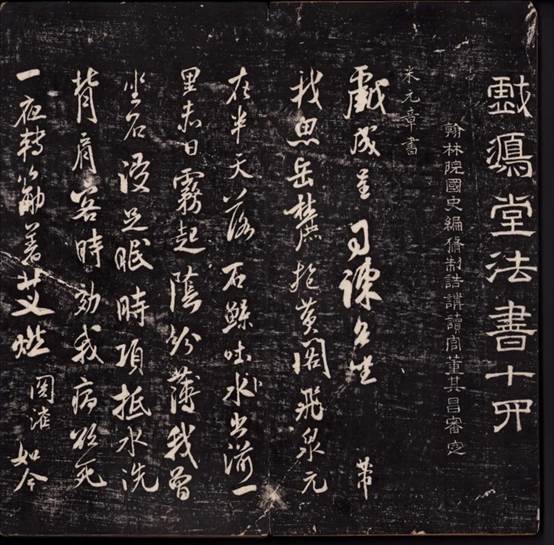 戯鴻堂法書十四
翰林院國史編脩制誥講讀官董其昌審定
米元章書
戲成呈 司諫台坐 芾
我思岳麓抱黃閣飛泉元
在半天落石鯨吐水出湔一
里赤日霧起陰紛薄我曾
坐石浸足眠肘項抵水洗
背肩客時効我病欲死
一夜轉筋著艾燃 如今